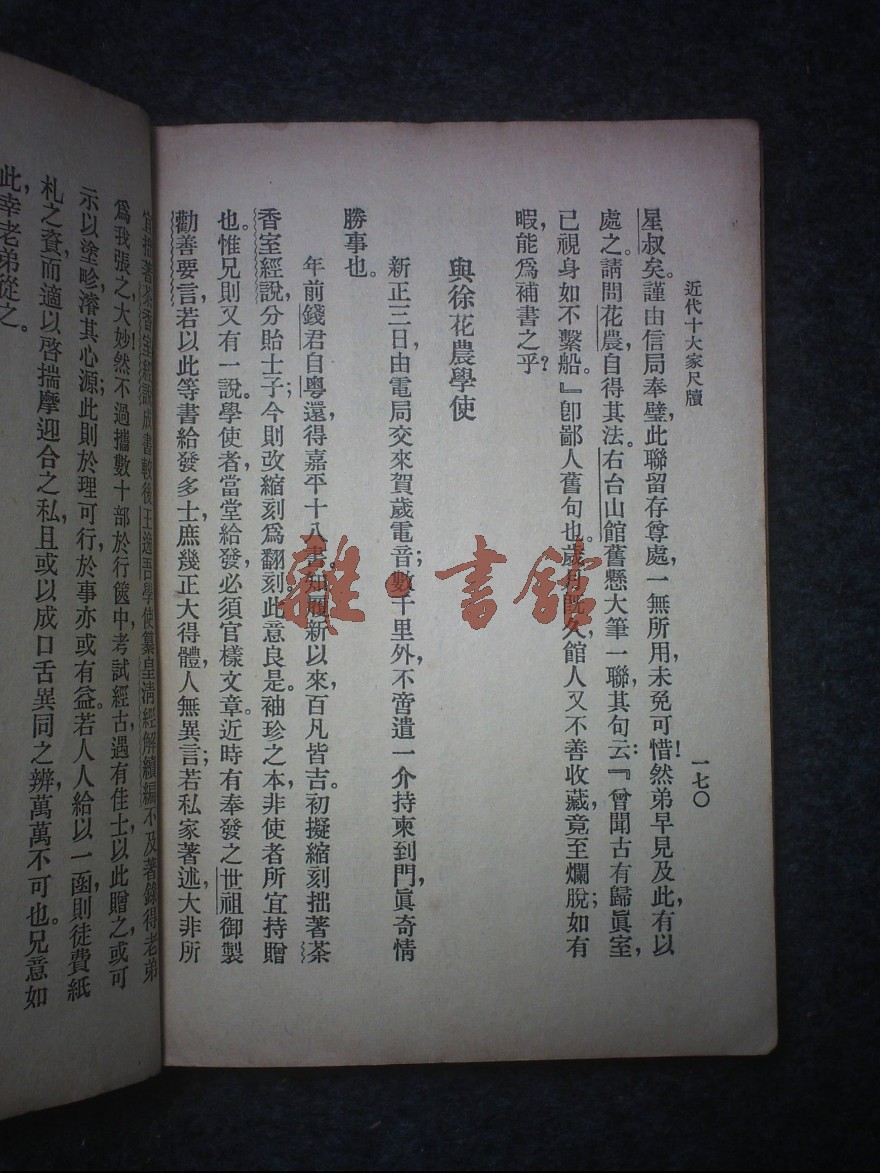 近代十大家尺牘
一七〇
星叔矣。謹由信局奉璧，此聯留存尊處，一無所用，未免可惜！然弟早見及此，有以
處之。請問花農，自得其法。右台山館舊懸大筆一聯，其句云：『曾聞古有歸眞室，
已視身如不繫船。』卽鄙人舊句也。歲月旣久，館人又不善收藏，竟至爛脫；如有
暇，能爲補書之乎？
與徐花農學使
新正三日，由電局交來賀歲電音；數千里外，不啻遣一介持柬到門，眞奇情
勝事也。
年前錢君自粵還，得嘉平十八書，知履新以來，百凡皆吉。初擬縮刻拙著茶
香室經說，分貽士子；今則改縮刻爲翻刻。此意良是。袖珍之本，非使者所宜持贈
也。惟兄則又有一說。學使者，當堂給發，必須官樣文章。近時有奉發之世祖御製
勸善要言，若以此等書給發多士，庶幾正大得體，人無異言；若私家著述，大非所
宜。拙著茶香室經說成書較後，王逸吾學使纂皇清經解續編，不及著錄，得老弟
爲我張之，大妙！然不過攜數十部於行篋中，考試經古，遇有佳士，以此贈之，或可
示以塗畛，濬其心源；此則於理可行，於事亦或有益。若人人給以一函，則徒費紙
札之資，而適以啓揣摩迎合之私，且或以成口舌異同之辨，萬萬不可也。兄意如
此，幸老弟從之。
雜·書館